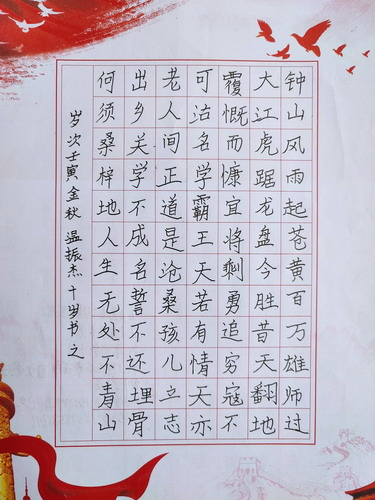 钟山风雨起苍黄百万雄师过
大江虎踞龙盘今胜昔天翻地
覆慨而慷宜将剩勇追穷寇不
可沽名学霸王天若有情天亦
老人间正道是沧桑孩儿立志
出乡关学不成名誓不还埋骨
何须桑梓地人生无处不青山
岁次壬寅金秋温振杰十岁书之